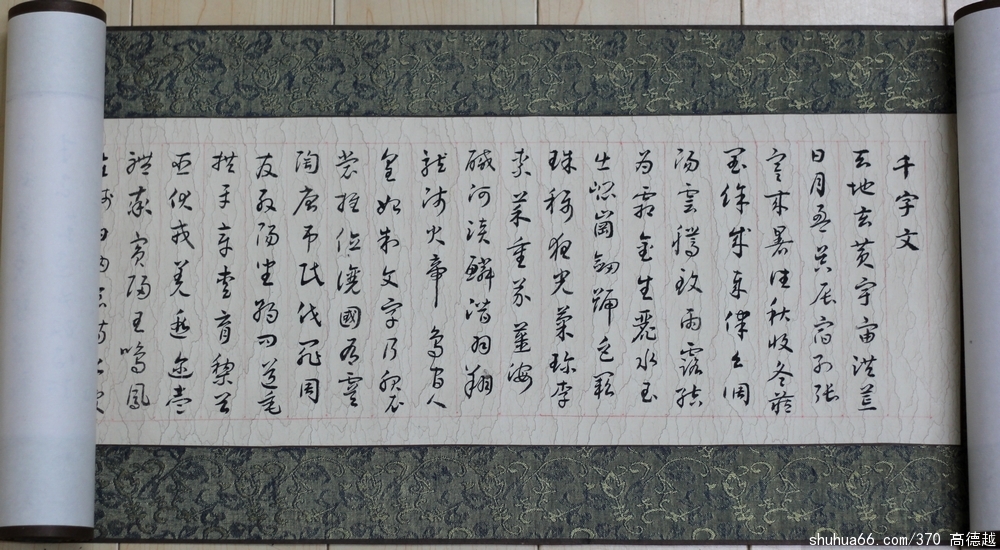 千字文
天地玄黄宇宙洪荒
日月盈昃辰宿列张
寒来暑往秋收冬藏
闰馀成岁律吕调
阳雲腾致雨露结
为霜金生丽水玉
出崑岡剑號巨闕
珠称夜光菓珍李
柰菜重芥薑海
鹹河淡鳞潛羽翔
龍師火帝鸟官人
皇始制文字乃服衣
裳推位讓國有虞
陶唐弔民伐罪周
发殷湯坐朝问道垂
拱平章爱育黎首
臣伏戎羌遐迩壹
體率賓歸王鳴鳳
shuhua66.com/370 高德越